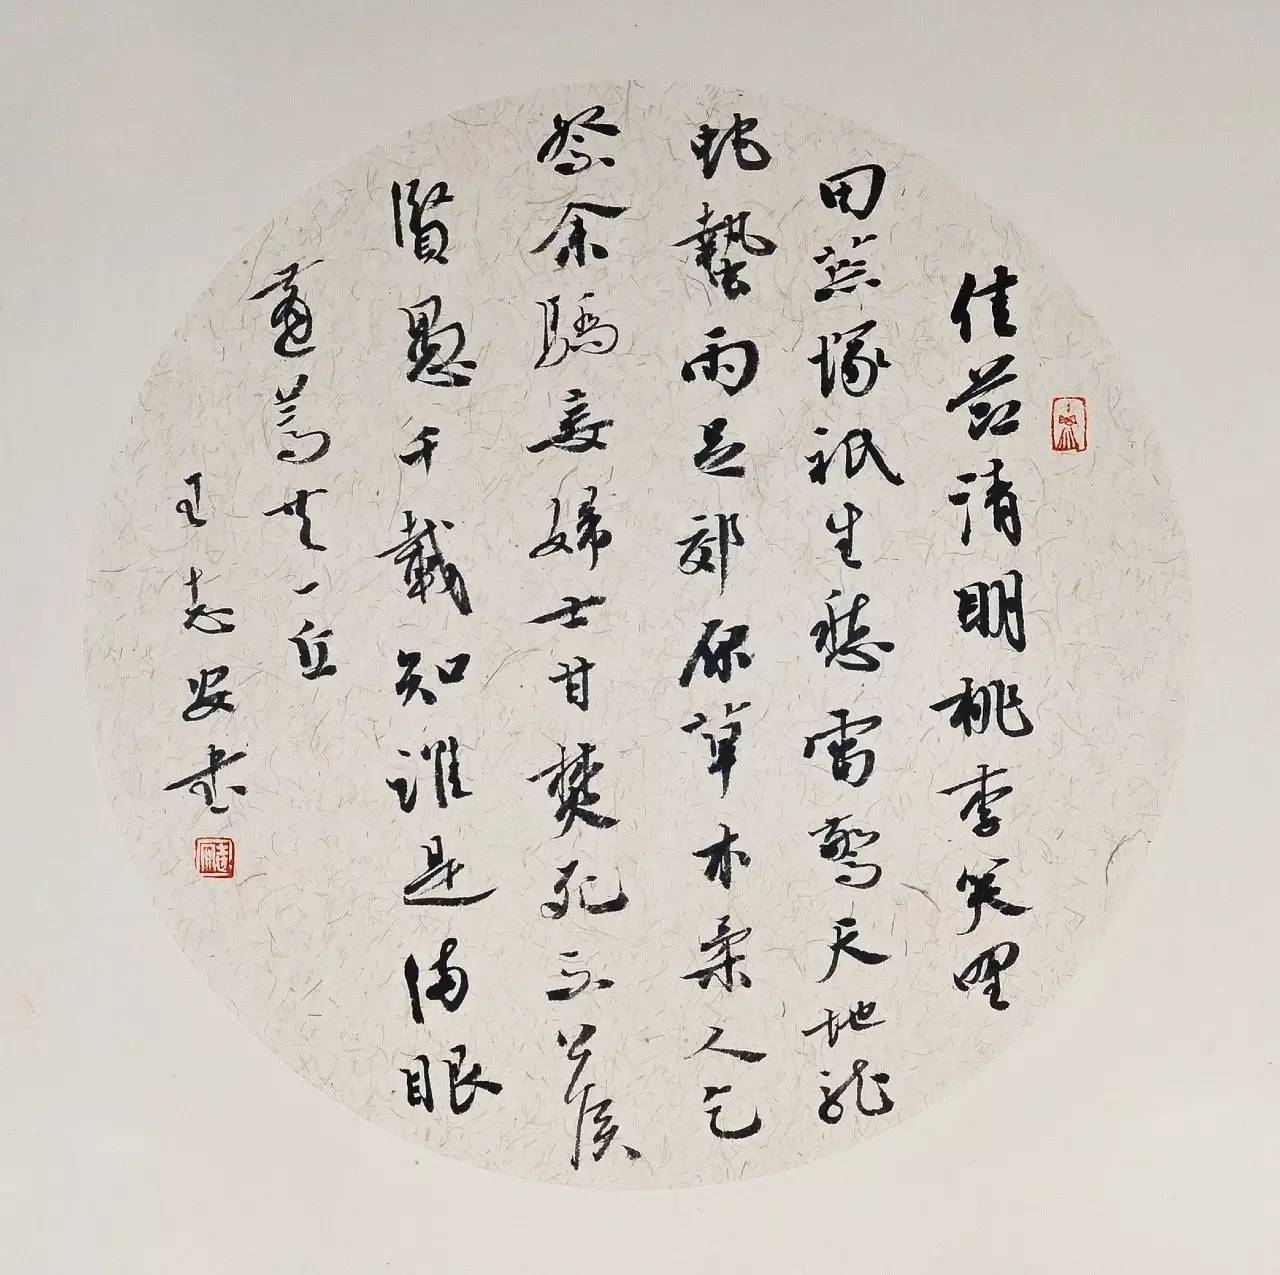 佳節清明桃李笑野
田蕪塚祇生愁雷驚天地龍
蛇蟄雨足郊原草木柔人乞
祭余驕妾婦士甘焚死不公侯
賢愚千載知誰是滿眼
蓬蒿共一丘
王志安書